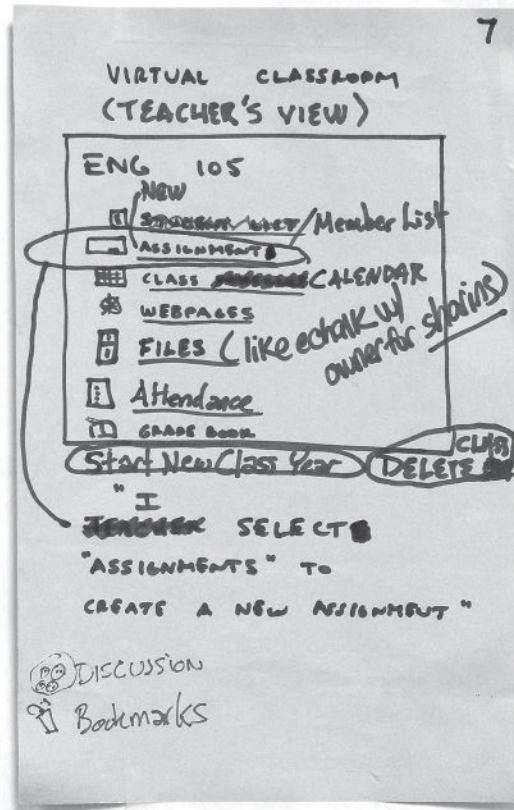 7
VIRTUAL CLASSROOM
(TEACHER'S VIEW)
ENG 105
NEW
STUDENT LIST / Member List
ASSIGNMENT
CLASS CALENDAR
WEBPAGES
FILES (like ectalk w/
owner for sharing)
Attendance
GRADE BOOK
Start New Class Year
CLASS
DELETE
"I
SELECT
"ASSIGNMENTS" TO
CREATE A NEW ASSIGNMENT"
DISCUSSION
Bookmarks